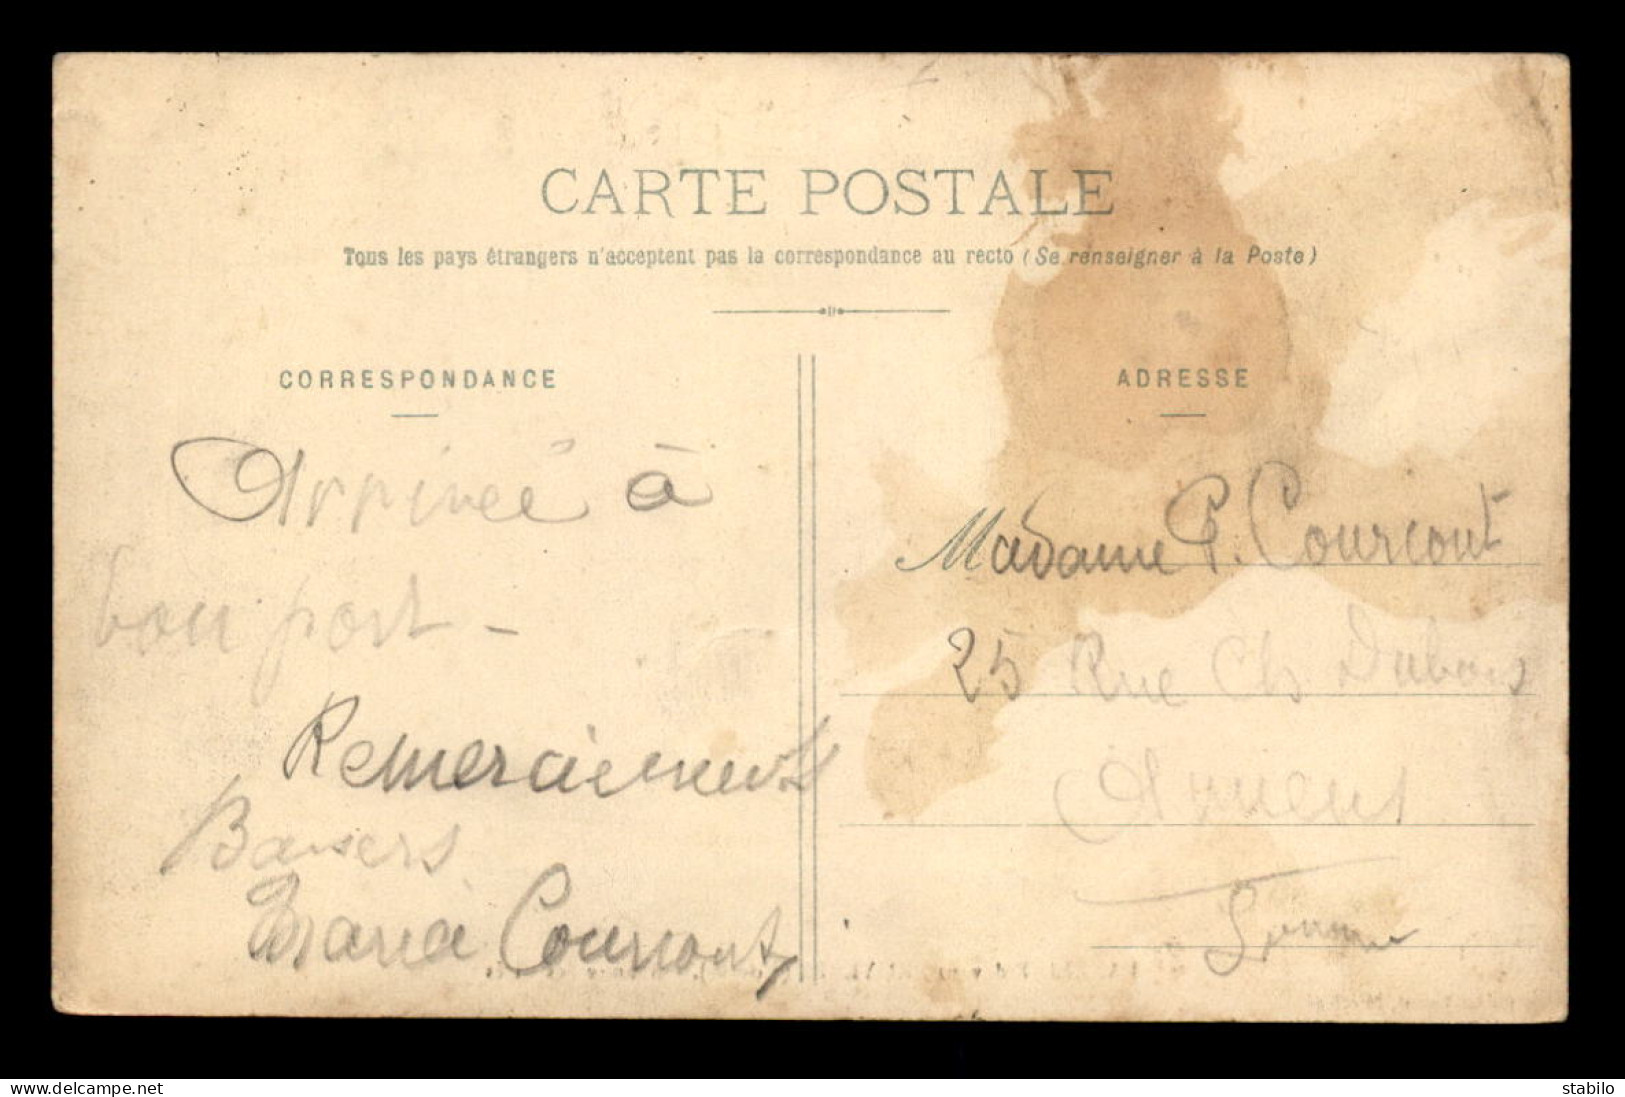 CARTE POSTALE
Tous les pays étrangers n'acceptent pas la correspondance au recto (Se renseigner à la Poste)
CORRESPONDANCE
Arrivée à
bon port -
Remerciements
Baisers
Maria Courcout
ADRESSE
Madame P. Courcout
25 Rue Ch Dubois
Amiens
Somme
delcampe.net
stabilo